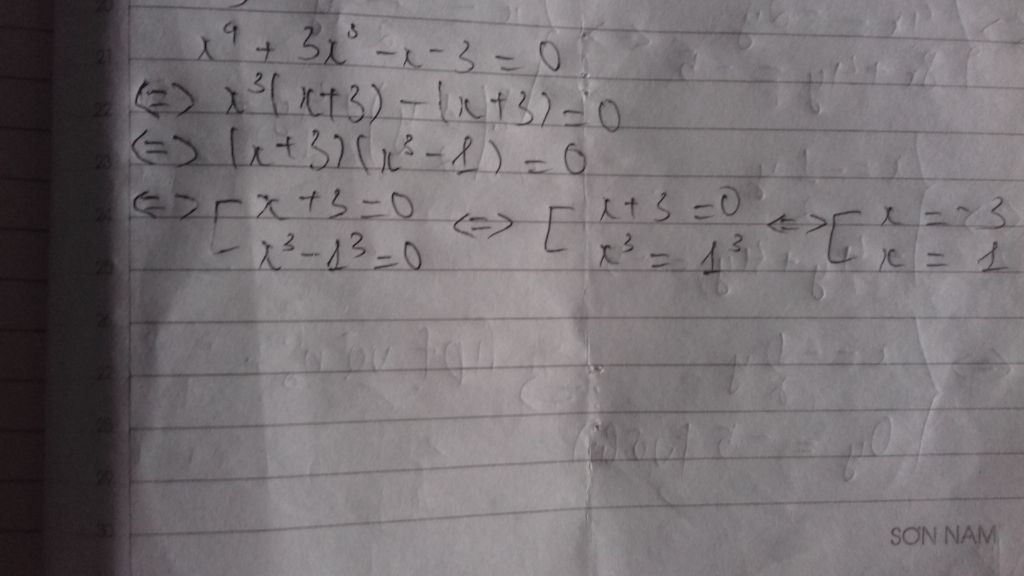 x⁹ + 3x³ - x - 3 = 0
<=> x³(x+3) - (x+3) = 0
<=> (x+3)(x³-1) = 0
<=> [ x+3=0 <=> [ x+3=0 <=> [ x=-3
x³-1³=0 x³=1³ x=1
SƠN NAM